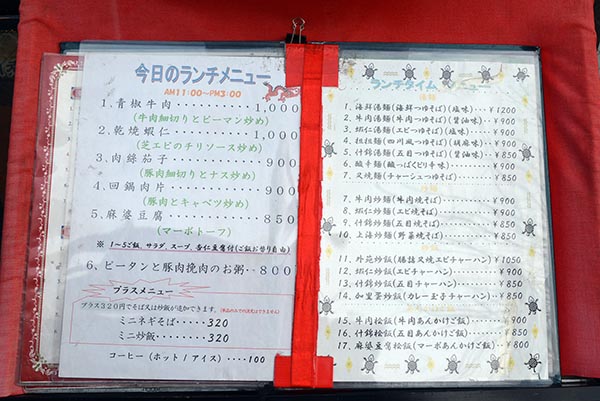 今日のランチメニュー
AM11:00~PM3:00
1.青椒牛肉‥‥‥‥‥1,000
(牛肉細切りとピーマン炒め)
2.乾焼蝦仁‥‥‥‥‥1,000
(芝エビのチリソース炒め)
3.肉絲茄子‥‥‥‥‥900
(豚肉細切りとナス炒め)
4.回鍋肉片‥‥‥‥‥900
(豚肉とキャベツ炒め)
5.麻婆豆腐‥‥‥‥‥850
(マーボトーフ)
※ 1~5ご飯、サラダ、スープ、杏仁豆腐付(ご飯お替り自由)
6、ピータンと豚肉挽肉のお粥‥800
プラスメニュー
プラス320円でそば又は炒飯が追加できます。
ミニネギそば‥‥‥320
ミニ炒飯‥‥‥‥320
コーヒー(ホット/アイス)‥‥100
ランチタイム メニュー
1.海鮮湯麺(海鮮つゆそば)(塩味)‥‥¥1200
2.牛肉湯麺(牛肉つゆそば)(醤油味)‥¥900
3.蝦仁湯麺(エビつゆそば)(塩味)‥‥¥900
4.担担麺(四川風つゆそば)(胡麻味)‥¥900
5.什錦湯麺(五目つゆそば)(醤油味)‥¥850
6.酸辛麺(酸っぱくピリ辛味)‥‥¥900
7.叉焼麺(チャーシューつゆそば)‥‥¥850
7.牛肉炒麺(牛肉焼そば)‥‥¥900
8.蝦仁炒麺(エビ焼そば)‥‥¥900
9.什錦炒麺(五目焼そば)‥‥¥850
10.上海炒麺(野菜焼そば)‥‥¥850
11.外苑炒飯(腸詰叉焼エビチャーハン)‥¥1050
12.蝦仁炒飯(エビチャーハン)‥‥¥900
13.什錦炒飯(五目チャーハン)‥‥¥850
14.加里蛋炒飯(カレー玉子チャーハン)‥¥850
15.牛肉烩飯(牛肉あんかけご飯)‥‥¥900
16.什錦烩飯(五目あんかけご飯)‥‥¥850
17.麻婆豆腐烩飯(マーボあんかけご飯)‥¥850